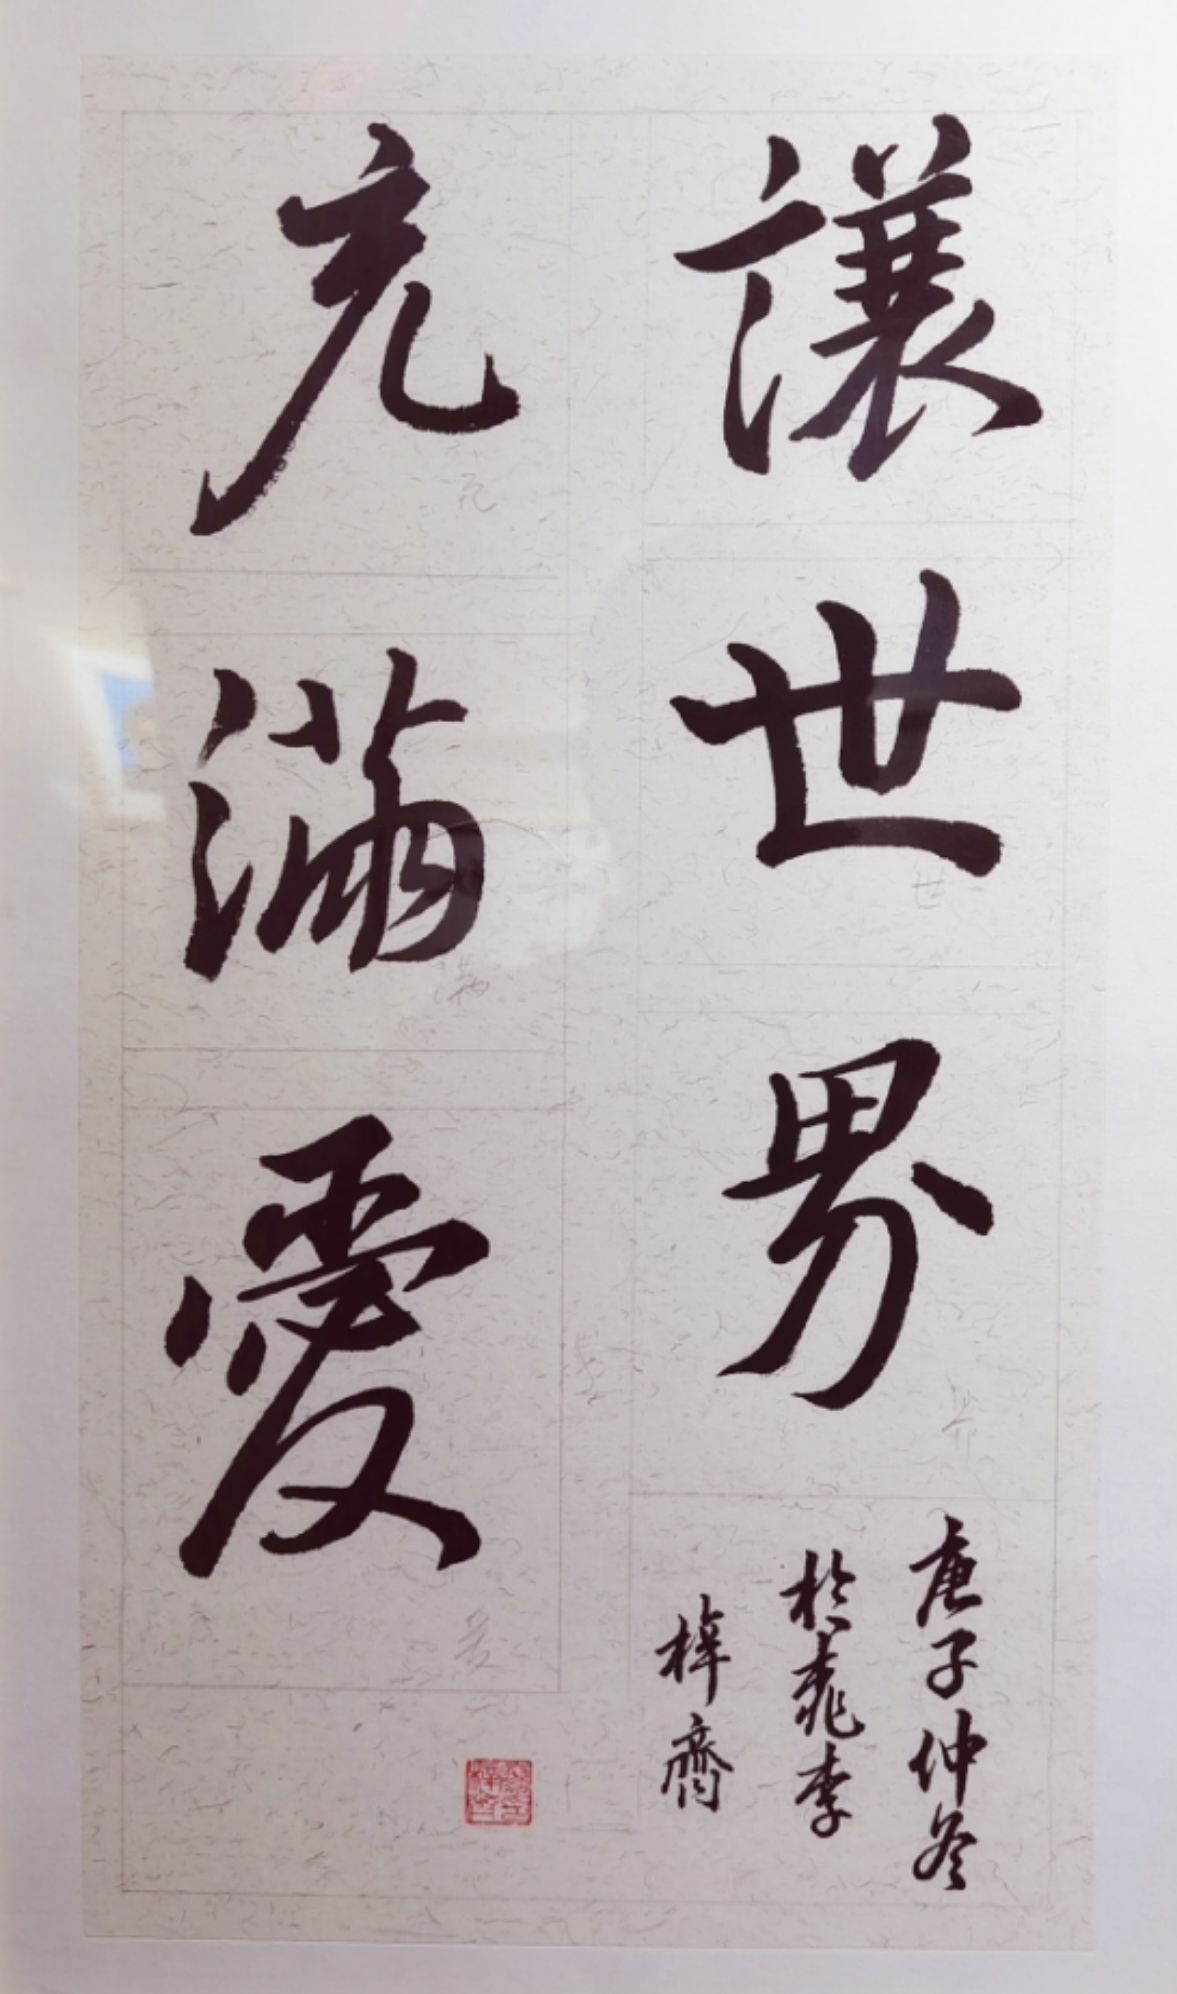 讓世界
充滿愛
庚子仲冬
於桃李
梓齋